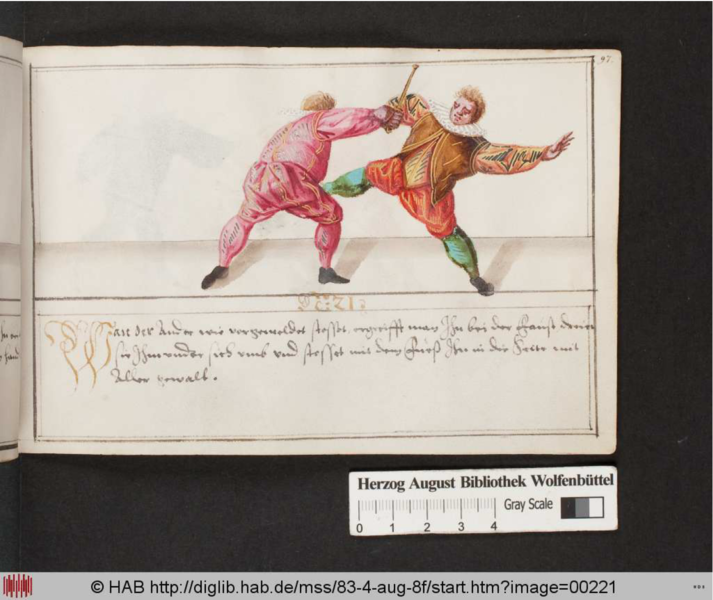 97.
21
Wan der Ander wie vorgemeldet stosset, ergreifft man Ihn bei der Faust darin
sie Ihm wende sich umb und stosset mit dem Fuess Ihn in die seite mit
Aller gewalt.
Herzog August Bibliothek Wolfenbüttel
Gray Scale
0 1 2 3 4
© HAB http://diglib.hab.de/mss/83-4-aug-8f/start.htm?image=00221